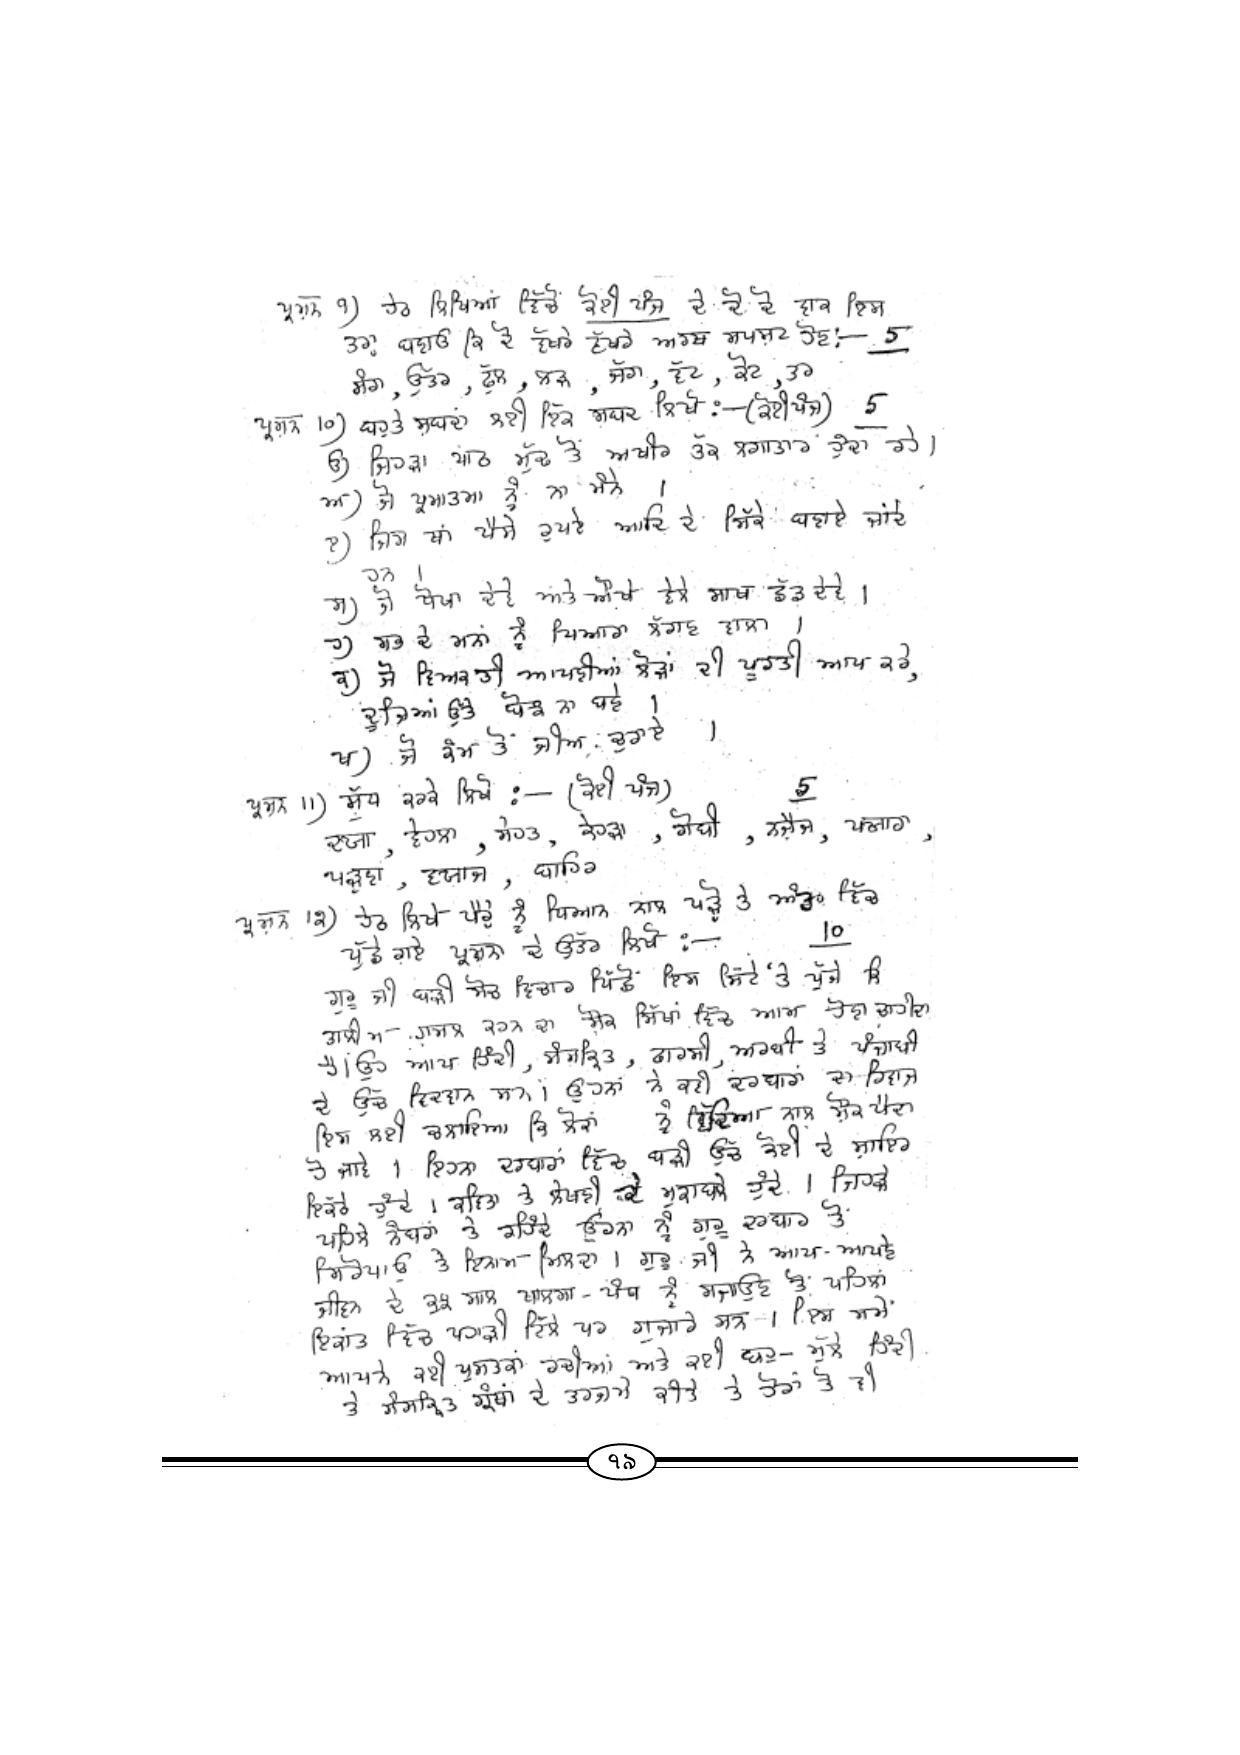 ਪ੍ਰਸ਼ਨ ੧) ਹੇਠ ਲਿਖਿਆਂ ਵਿੱਚੋਂ ਕੋਈ ਪੰਜ ਦੇ ਦੋ ਦੋ ਵਾਕ ਇਸ
ਤਰ੍ਹਾਂ ਬਣਾਓ ਕਿ ਦੋ ਵੱਖਰੇ ਵੱਖਰੇ ਅਰਥ ਸਪਸ਼ਟ ਹੋਣ:— 5
ਸੰਗ, ਉੱਤਰ, ਫੁੱਲ, ਲੜ, ਜੱਗ, ਵੱਟ, ਕੋਟ, ਤਰ
ਪ੍ਰਸ਼ਨ 10) ਬਹੁਤੇ ਸ਼ਬਦਾਂ ਲਈ ਇੱਕ ਸ਼ਬਦ ਲਿਖੋ :—(ਕੋਈ ਪੰਜ) 5
ੳ) ਜਿਹੜਾ ਪਾਠ ਮੁੱਢ ਤੋਂ ਅਖੀਰ ਤੱਕ ਲਗਾਤਾਰ ਹੁੰਦਾ ਰਹੇ।
ਅ) ਜੋ ਪ੍ਰਮਾਤਮਾ ਨੂੰ ਨਾ ਮੰਨੇ ।
ੲ) ਜਿਸ ਥਾਂ ਪੈਸੇ ਰੁਪਏ ਆਦਿ ਦੇ ਸਿੱਕੇ ਬਣਾਏ ਜਾਂਦੇ
ਹਨ ।
ਸ) ਜੋ ਧੋਖਾ ਦੇਵੇ ਅਤੇ ਔਖੇ ਵੇਲੇ ਸਾਥ ਛੱਡ ਦੇਵੇ ।
ਹ) ਸਭ ਦੇ ਮਨਾਂ ਨੂੰ ਪਿਆਰਾ ਲੱਗਣ ਵਾਲਾ ।
ਕ) ਜੋ ਵਿਅਕਤੀ ਆਪਣੀਆਂ ਲੋੜਾਂ ਦੀ ਪੂਰਤੀ ਆਪ ਕਰੇ,
ਦੂਜਿਆਂ ਉੱਤੇ ਬੋਝ ਨਾ ਬਣੇ ।
ਖ) ਜੋ ਕੰਮ ਤੋਂ ਜੀਅ ਚੁਰਾਏ ।
ਪ੍ਰਸ਼ਨ 11) ਸ਼ੁੱਧ ਕਰਕੇ ਲਿਖੋ :— (ਕੋਈ ਪੰਜ) 5
ਦਯਾ, ਵੇਹਲਾ, ਸੇਹਤ, ਕੇਹੜਾ, ਗੋਬੀ, ਨਜ਼ੈਜ, ਪਯਾਰ,
ਪੜ੍ਹਣਾ, ਵਯਾਜ, ਬਾਹਿਰ
ਪ੍ਰਸ਼ਨ 12) ਹੇਠ ਲਿਖੇ ਪੈਰ੍ਹੇ ਨੂੰ ਧਿਆਨ ਨਾਲ ਪੜ੍ਹੋ ਤੇ ਅੰਤ ਵਿੱਚ
ਪੁੱਛੇ ਗਏ ਪ੍ਰਸ਼ਨਾ ਦੇ ਉੱਤਰ ਲਿਖੋ :— 10
ਗੁਰੂ ਜੀ ਬੜੀ ਸੋਚ ਵਿਚਾਰ ਪਿੱਛੋਂ ਇਸ ਸਿੱਟੇ 'ਤੇ ਪੁੱਜੇ ਕਿ
ਤਾਲੀਮ ਹਾਸਲ ਕਰਨ ਦਾ ਸ਼ੌਕ ਸਿੱਖਾਂ ਵਿੱਚ ਆਮ ਹੋਣਾ ਚਾਹੀਦਾ
ਹੈ। ਉਹ ਆਪ ਹਿੰਦੀ, ਸੰਸਕ੍ਰਿਤ, ਫਾਰਸੀ, ਅਰਬੀ ਤੇ ਪੰਜਾਬੀ
ਦੇ ਉੱਚ ਵਿਦਵਾਨ ਸਨ। ਉਹਨਾਂ ਨੇ ਕਵੀ ਦਰਬਾਰਾਂ ਦਾ ਰਿਵਾਜ
ਇਸ ਲਈ ਚਲਾਇਆ ਕਿ ਲੋਕਾਂ ਨੂੰ ਵਿੱਦਿਆ ਨਾਲ ਸ਼ੌਕ ਪੈਦਾ
ਹੋ ਜਾਵੇ । ਇਹਨਾ ਦਰਬਾਰਾਂ ਵਿੱਚ ਬੜੀ ਉੱਚ ਕੋਟੀ ਦੇ ਸ਼ਾਇਰ
ਇਕੱਠੇ ਹੁੰਦੇ । ਕਵਿਤਾ ਤੇ ਲੇਖਣੀ ਦੇ ਮੁਕਾਬਲੇ ਹੁੰਦੇ । ਜਿਹੜੇ
ਪਹਿਲੇ ਨੰਬਰਾਂ ਤੇ ਰਹਿੰਦੇ ਉਹਨਾ ਨੂੰ ਗੁਰੂ ਦਰਬਾਰ ਤੋਂ
ਸਿਰੋਪਾਓ ਤੇ ਇਨਾਮ ਮਿਲਦਾ । ਗੁਰੂ ਜੀ ਨੇ ਆਪ-ਆਪਣੇ
ਜੀਵਨ ਦੇ ਕੁਝ ਸਾਲ ਖਾਲਸਾ-ਪੰਥ ਨੂੰ ਸਜਾਉਣ ਤੋਂ ਪਹਿਲਾਂ
ਇਕਾਂਤ ਵਿੱਚ ਪਹਾੜੀ ਇਲਾਕੇ ਪਰ ਗੁਜ਼ਾਰੇ ਸਨ । ਇਸ ਸਮੇਂ
ਆਪਨੇ ਕਈ ਪੁਸਤਕਾਂ ਰਚੀਆਂ ਅਤੇ ਕਈ ਬਹੁ-ਮੁੱਲੇ ਹਿੰਦੀ
ਤੇ ਸੰਸਕ੍ਰਿਤ ਗ੍ਰੰਥਾਂ ਦੇ ਤਰਜਮੇ ਕੀਤੇ ਤੇ ਹੋਰਾਂ ਤੋਂ ਵੀ
੧੯